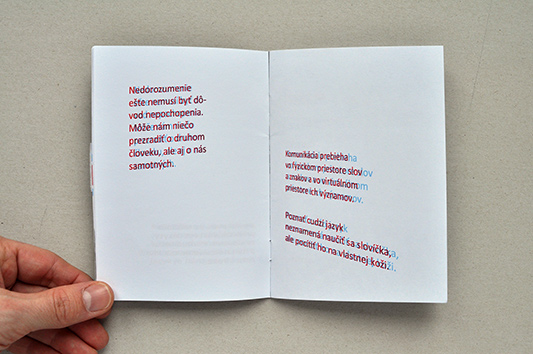 Nedorozumenie
ešte nemusí byť dô-
vod nepochopenia.
Môže nám niečo
prezradiť o druhom
človeku, ale aj o nás
samotných.
Komunikácia prebieha
vo fyzickom priestore slov
a znakov a vo virtuálnom
priestore ich významov.
Poznať cudzí jazyk
neznamená naučiť sa slovíčka,
ale pocítiť ho na vlastnej koži.